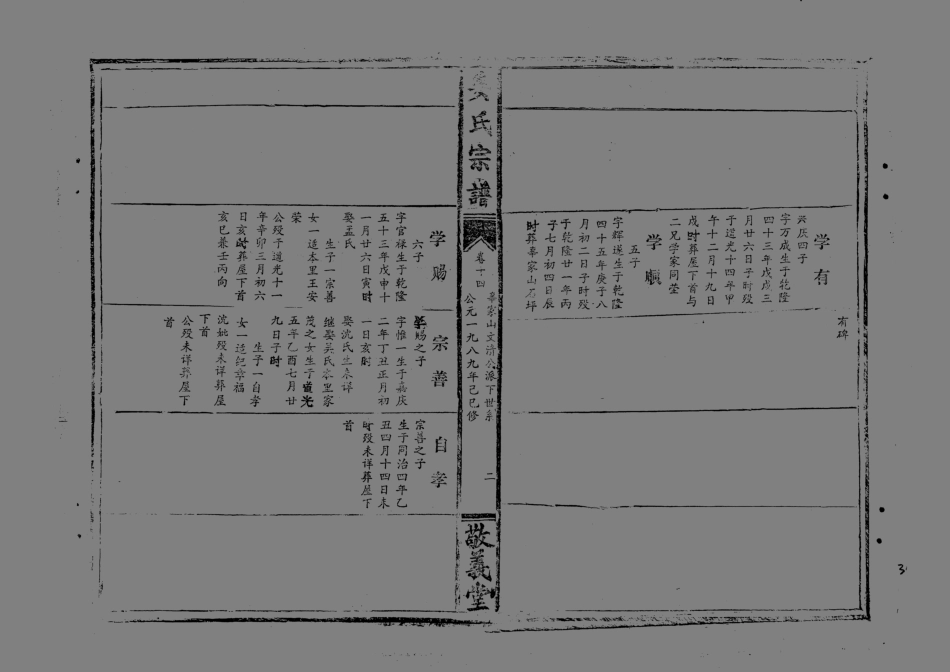 学有
四子
字万成生于乾隆
四十三年戊戌三
月廿六日子时殁
于道光十四年甲
午十二月十九日
戌时葬屋下首与
二兄学家同茔
有碑
学
五子
字辉遂生于乾隆
四十五年庚子八
月初二日子时殁
于乾隆廿一年丙
子七月初四日辰
时葬辜家山石坪
吴氏宗谱
卷十四
辜家山文清公派下世系
公元一九八九年己巳修
二
敬义堂
学赐
六子
字官禄生于乾隆
五十三年戊申十
一月廿六日寅时
娶孟氏
生子一宗善
女一适本里王安
荣
公殁于道光十一
年辛卯三月初六
日亥时葬屋下首
亥巳兼壬丙向
宗善
学赐之子
字惟一生于嘉庆
二年丁丑正月初
一日亥时
娶沈氏生未详
继娶吴氏本里家
茂之女生于道光
五年乙酉七月廿
九日子时
生子一自孝
女一适纪幸福
沈妣殁未详葬屋
下首
公殁未详葬屋下
首
自孝
宗善之子
生于同治四年乙
丑四月十四日未
时殁未详葬屋下
首